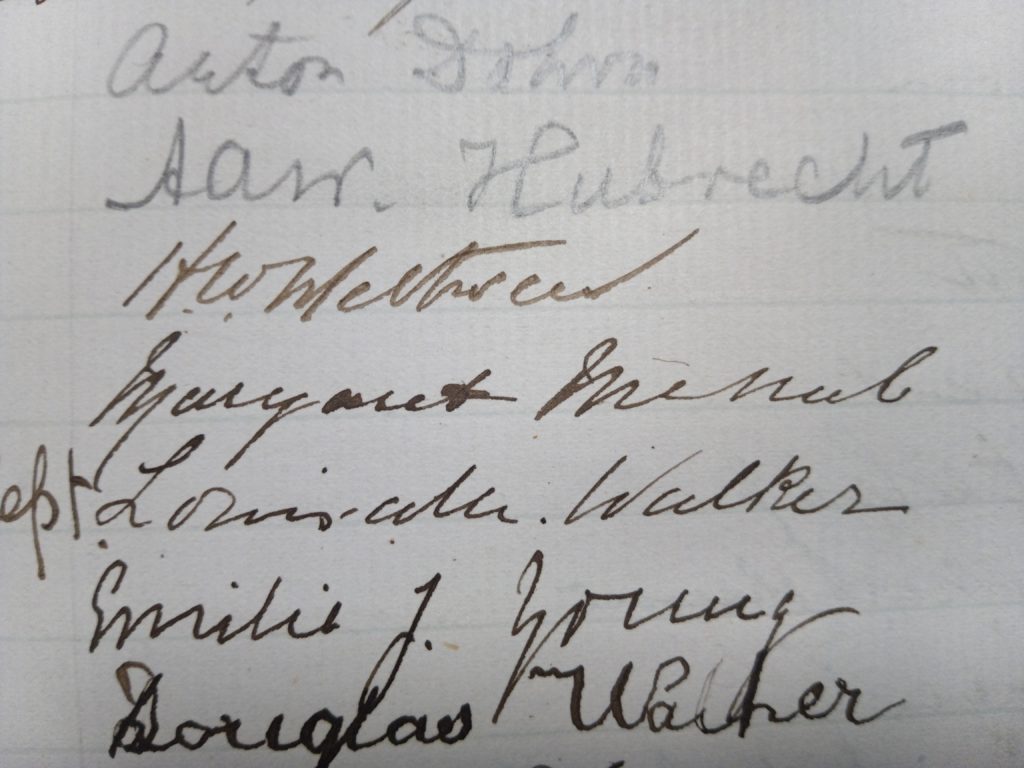 Anton Dohrn
AAW. Hubrecht
H.W.
Margaret McNab
Sept Louisa M. Walker
Emilie J. Young
Douglas Walker